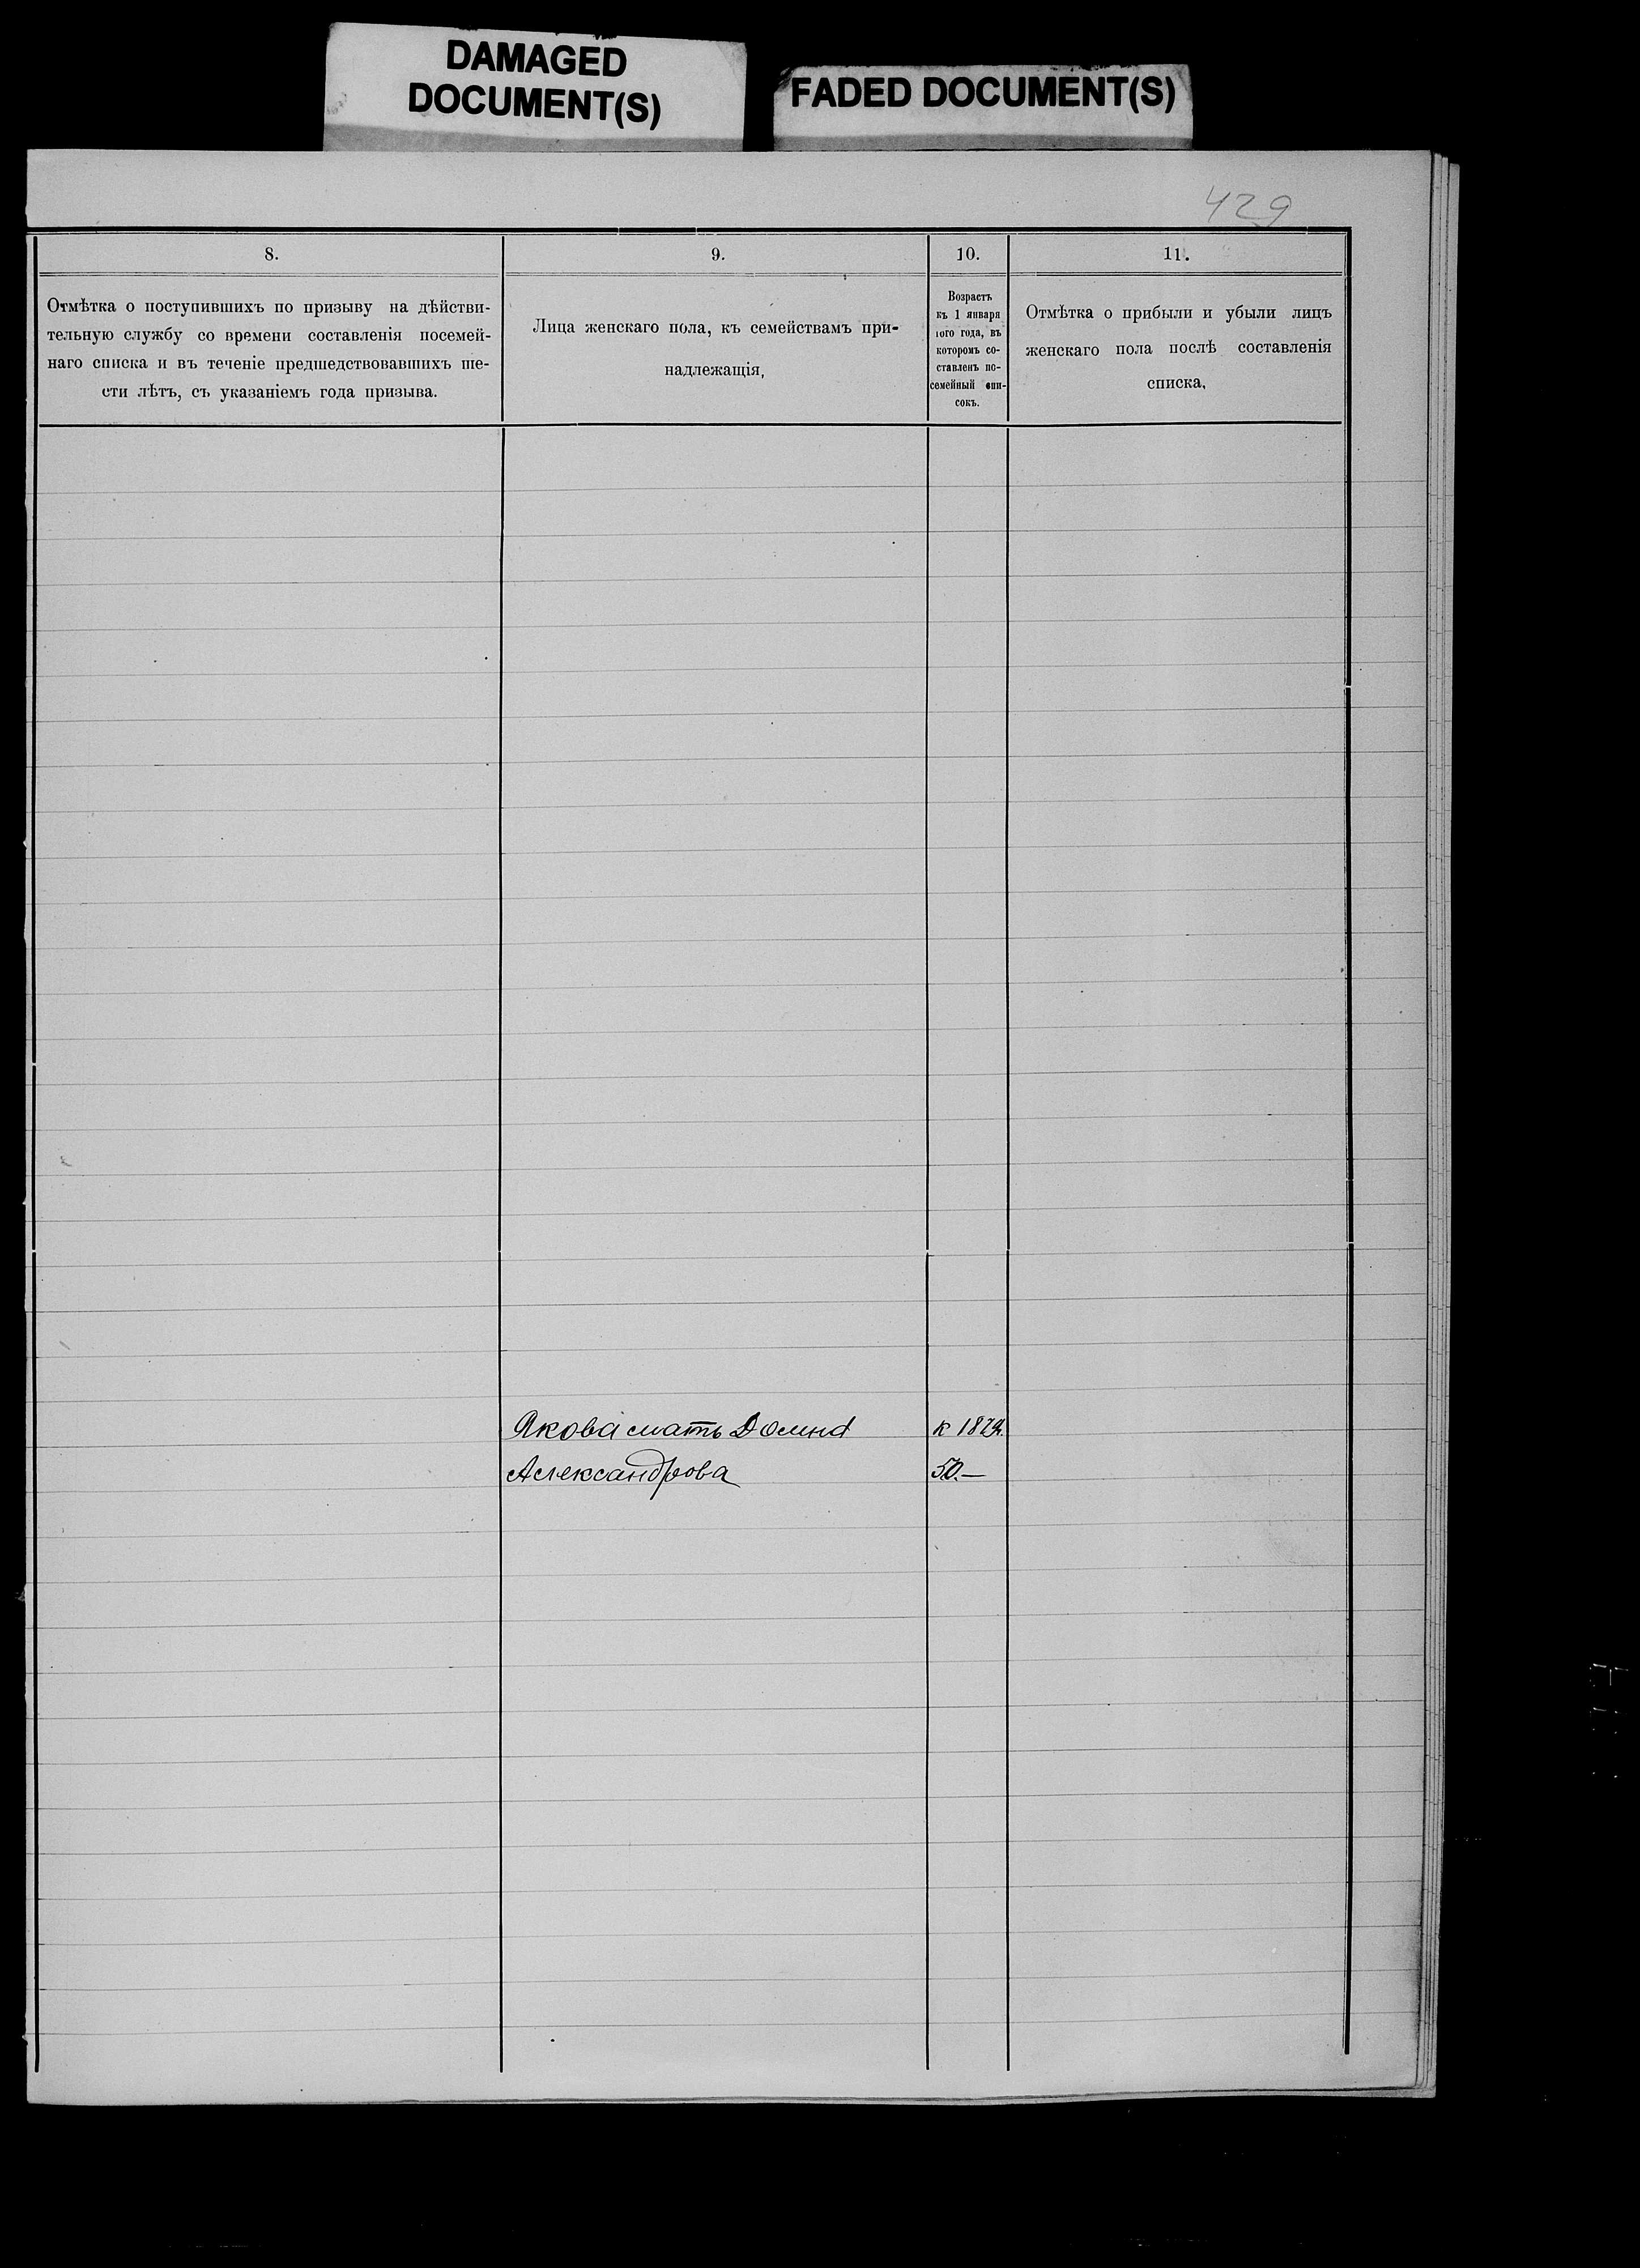 DAMAGED
DOCUMENT(S)
FADED DOCUMENT(S)
429
8.
Отмѣтка о поступившихъ по призыву на дѣйстви-
тельную службу со времени составленія посемей-
наго списка и въ теченіе предшедствовавшихъ ше-
сти лѣтъ, съ указаніемъ года призыва.
9.
Лица женскаго пола, къ семействамъ при-
надлежащія,
10.
Возрастъ
къ 1 января
того года, въ
которомъ со-
ставленъ по-
семейный спи-
сокъ.
11.
Отмѣтка о прибыли и убыли лицъ
женскаго пола послѣ составленія
списка,
Якова мать Домна
к
Александрова
50.—